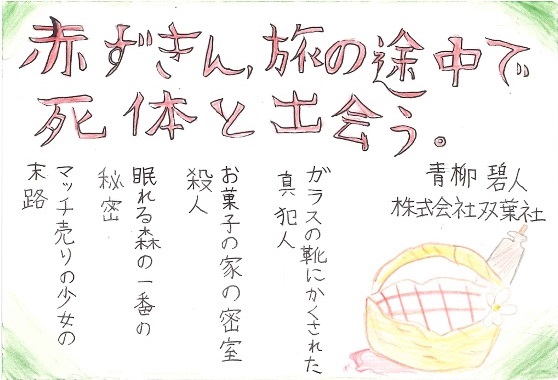 赤ずきん、旅の途中で
死体と出会う。
青柳 碧人
株式会社双葉社
ガラスの靴にかくされた
真犯人
お菓子の家の密室
殺人
眠れる森の一番の
秘密
マッチ売りの少女の
末路